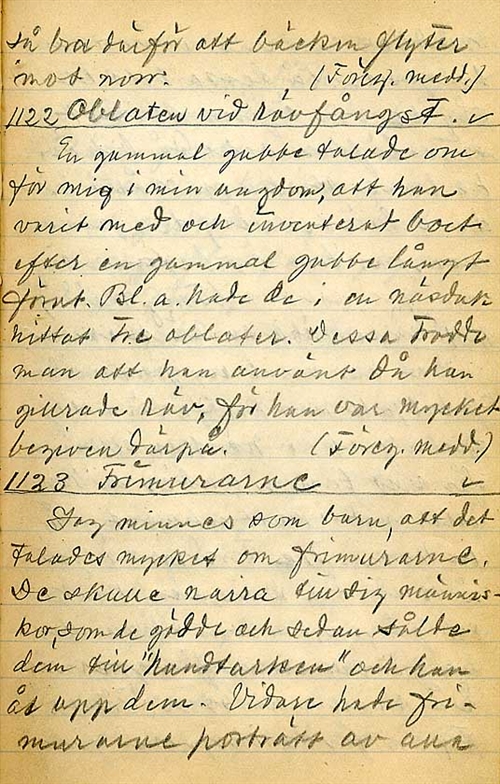 så bra därför att bäcken flyter
mot norr. (Föreg. medd.)
1122 Oblaten vid rävfångst.
En gammal gubbe talade om
för mig i min ungdom, att han
varit med och inventerat boet
efter en gammal gubbe långt
förut. Bl. a. hade de i en näsduk
hittat tre oblater. Dessa trodde
man att han använt då han
gillrade räv, för han var mycket
begiven därpå. (Föreg. medd.)
1123 Frimurarne
Jag minnes som barn, att det
talades mycket om frimurarne.
De skulle narra till sig männis-
kor, som de gödde och sedan sålde
dem till "hundturken" och han
åt upp dem. Vidare hade fri-
murarne porträtt av alla